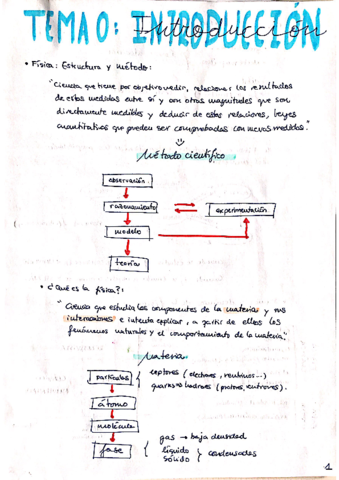 TEMA 0: INTRODUCCIÓN
• Física: Estructura y método:
"Ciencia que tiene por objetivo medir, relacionar los resultados
de estas medidas entre sí y con otras magnitudes que son
directamente medibles y deducir de estas relaciones, leyes
cuantitativas que puedan ser comprobadas con nuevas medidas."
Método científico
observación
razonamiento
experimentación
modelo
teoría
• ¿Qué es la física?:
"Ciencia que estudia los componentes de la materia y sus
interacciones e intenta explicar, a partir de ellos los
fenómenos naturales y el comportamiento de la materia."
Materia
partículas
leptones (electrones, neutrinos...)
quarks → hadrones (protones, neutrones).
átomo
molécula
fase
gas → baja densidad
líquido
sólido
condensadas
1